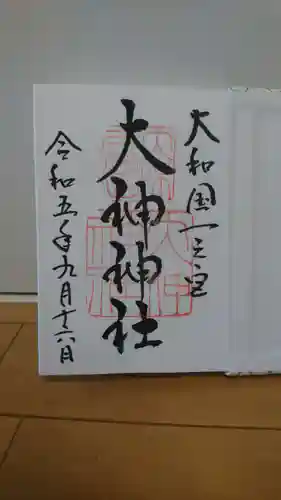 大和国一之宮
大神神社
令和五年九月十六日